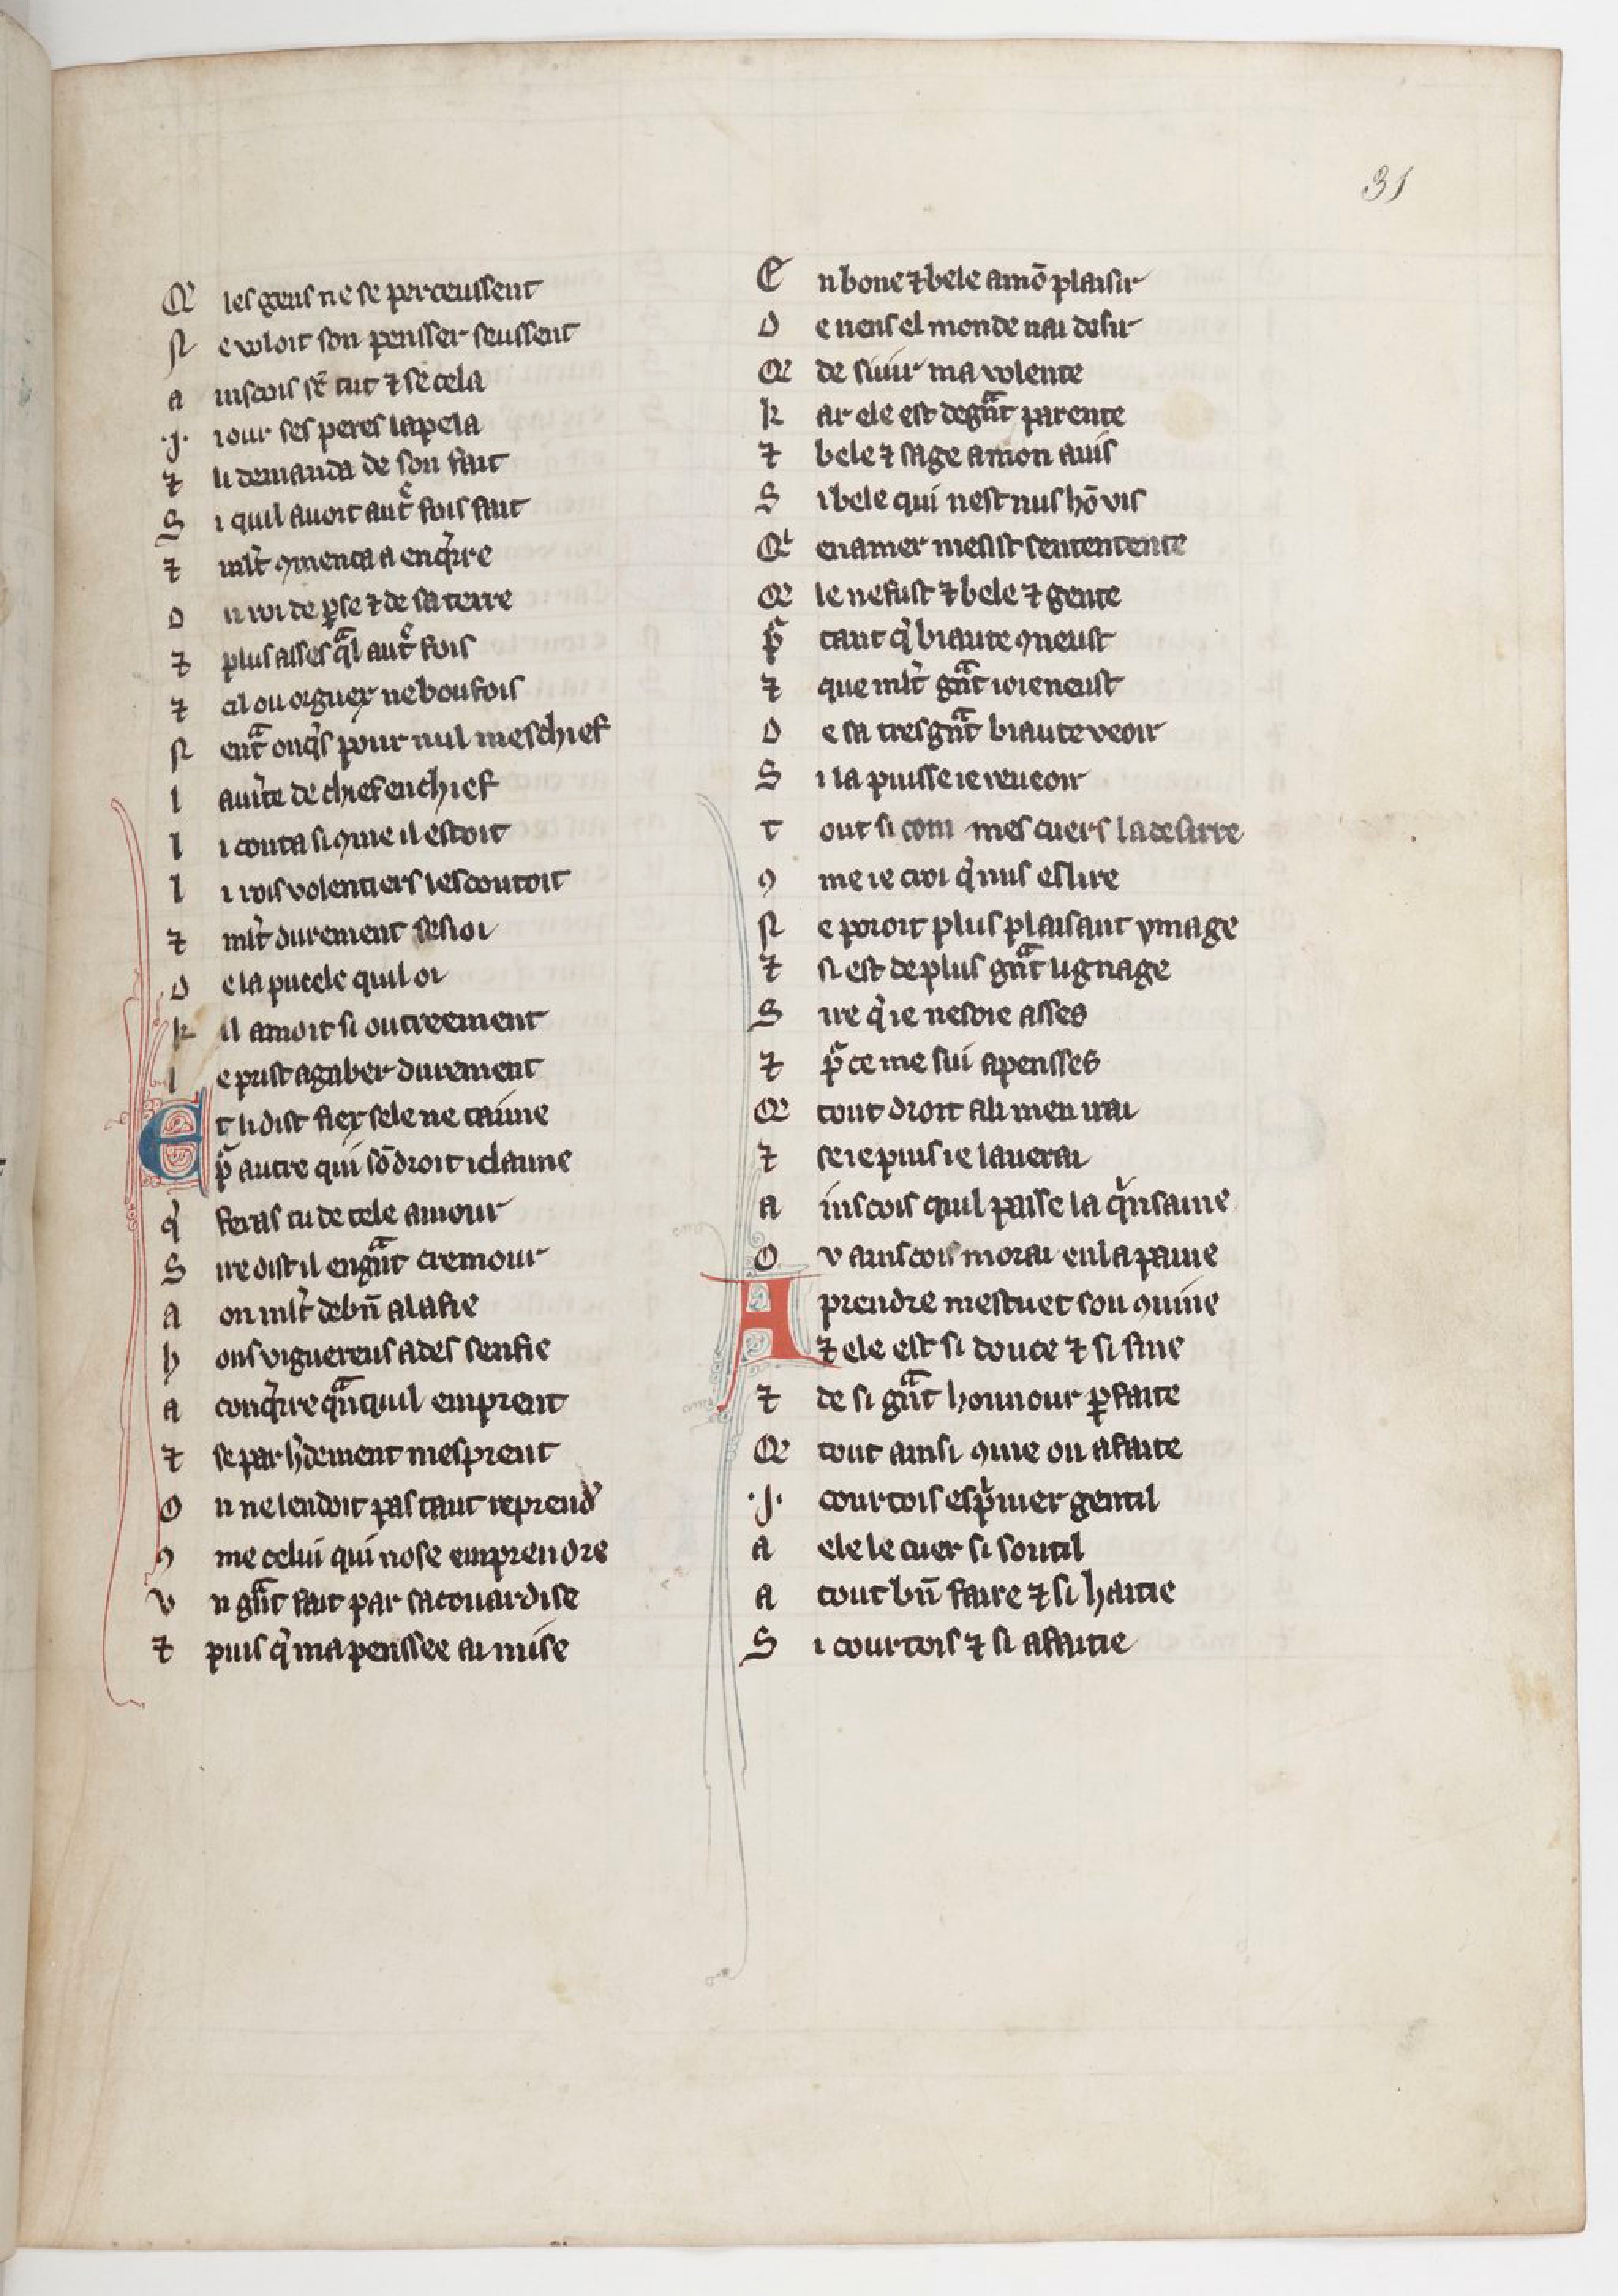 31
Q̃ les gens ne se perceussent
N e voloit son pensser seussent
a inscois sē tut ⁊ se cela
.j. iour ses peres lapela
⁊ li demanda de son fait
S i quil auoit aut͛ fois fait
⁊ ml̓t ꝯmenca a enq̓rre
D u roi de ꝑse ⁊ de sa terre
⁊ plus asses q̄l aut͛ fois
⁊ cil ou orguex ne boufois
N ent͛ onq̓s pour nul meschief
l auure de chief en chief
l i conta si ꝯme il estoit
l i rois volentiers lescoutoit
⁊ ml̓t durement sesioi
D e la pucele quil oi
k il amoit si outreement
l e prist a gaber durement
E t li dist fiex sele ne taime
p̃ autre qui sō droit i claime
q̓ feras tu de cele amour
S ire dist il en gn̄t cremour
A on ml̓t de bn̄ alafie
h ons viguereus ades senfie
A conq̓rre qn̄tquil emprent
⁊ se par h̓dement mesprent
O n ne len doit pas tant reprend͛
ꝯ me celui qui nose emprendre
v n gn̄t fait par sa couardise
⁊ puis q̓ ma penssee ai mise
E n bone ⁊ bele amō plaisir
D e riens el monde nai desir
Q̃ de siuir ma volente
k ar ele est de gn̄t parente
⁊ bele ⁊ sage a mon auis
S i bele qui nest nus hō vis
Qi en amer mesist sententente
Q̃ le ne fust ⁊ bele ⁊ gente
p̃ tant q̓ biaute ꝯneust
⁊ que ml̓t gn̄t ioie neust
D e sa tres gn̄t biaute veoir
S i la puisse ie reueoir
t out si com mes cuers la desirre
ꝯ me ie croi q̓ nus eslire
N e poroit plus plaisant ymage
⁊ si est de plus gn̄t lignage
S ire q̓ ie ne soie asses
⁊ p̃ ce me sui apensses
Q̃ tout droit a li men irai
⁊ se ie puis ie lauerai
A inscois quil passe la q̓nsaine
O v ainscois morai en la paine
A prendre mestuet son ꝯuine
⁊ ele est si douce ⁊ si fine
⁊ de si gn̄t honnour ꝑfaite
Q̃ tout ainsi ꝯme on afaite
.j. courtois esp̓uier gentil
A ele le cuer si soutil
A tout bn̄ faire ⁊ si haitie
S i courtois ⁊ si afaitie